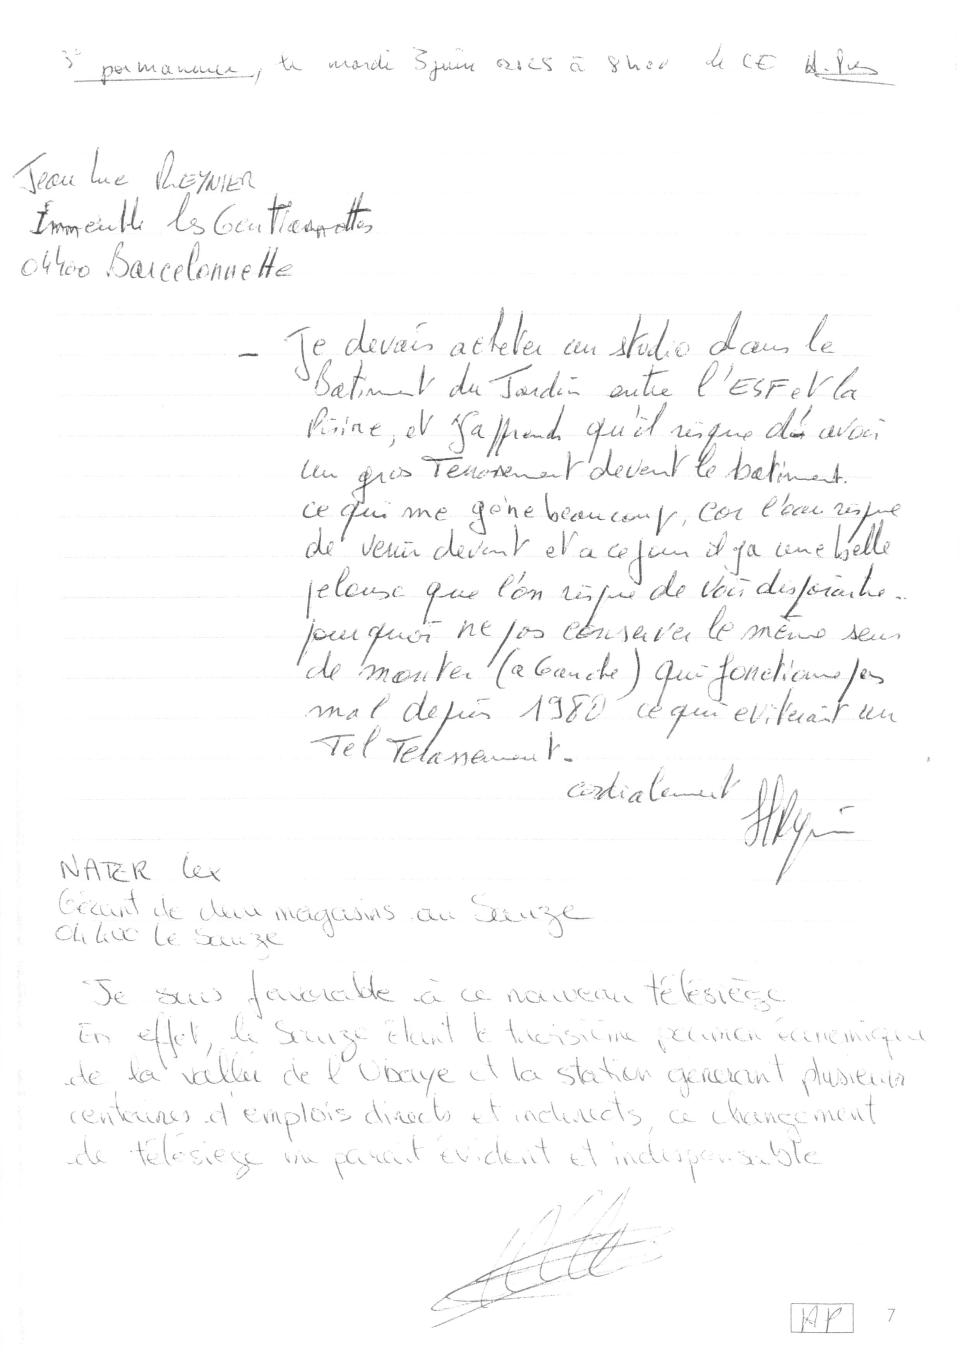 3° permanence, le mardi 3 juin 2025 à 8h00 le CE
Jean Luc REYNIER
Immeuble les Gentianettes
04400 Barcelonnette
– Je devais acheter un studio dans le
Batiment du Jardin entre l'ESF et la
Piscine, et J'apprends qu'il risque d'y avoir
un gros Terrassement devent le batiment.
ce qui me gène beaucoup, car l'eau risque
de venir devant et a ce jour il ya une belle
pelouse que l'on risque de voir disparaitre..
pourquoi ne pas conserver le même sens
de monter (a Gauche) qui fonctionne pas
mal depuis 1980 ce qui eviterait un
Tel Terassement.
cordialement
NATER Lex
Gérant de deux magasins au Sauze
04400 Le Sauze
Je suis favorable à ce nouveau télésiège
En effet, le Sauze étant le troisième poumon économique
de la vallée de l'Ubaye et la station générant plusieurs
centaines d'emplois directs et indirects, ce changement
de télésiège me parait évident et indispensable
7